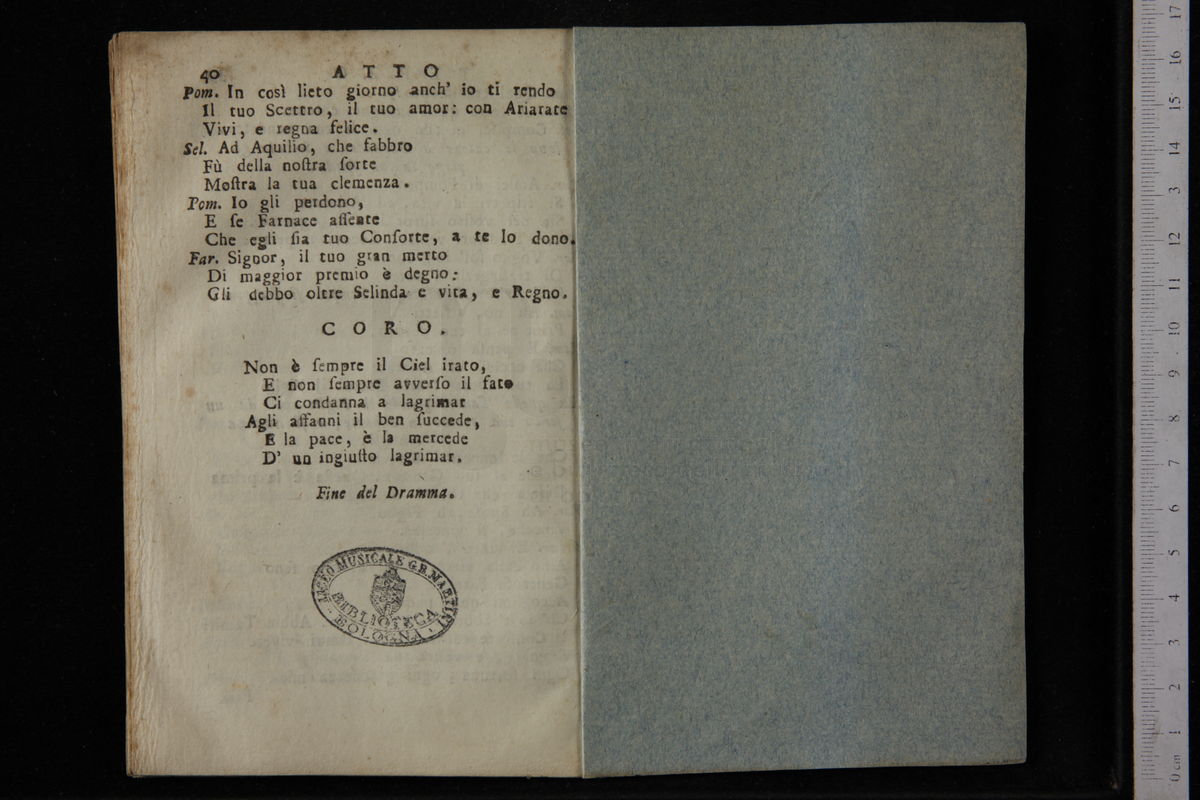 40 ATTO
Pom. In così lieto giorno anch' io ti rendo
Il tuo Scettro, il tuo amor: con Ariarate
Vivi, e regna felice.
Sel. Ad Aquilio, che fabbro
Fù della noſtra ſorte
Moſtra la tua clemenza.
Pom. Io gli perdono,
E ſe Farnace aſſente
Che egli ſia tuo Conſorte, a te lo dono.
Far. Signor, il tuo gran merto
Di maggior premio è degno:
Gli debbo oltre Selinda e vita, e Regno.
CORO.
Non è ſempre il Ciel irato,
E non ſempre avverſo il fato
Ci condanna a lagrimar
Agli affanni il ben ſuccede,
E la pace, è la mercede
D' un ingiuſto lagrimar.
Fine del Dramma.
LICEO MUSICALE G.B. MARTINI
BIBLIOTECA
BOLOGNA
0 cm 1 2 3 4 5 6 7 8 9 10 11 12 3 14 15 16 17